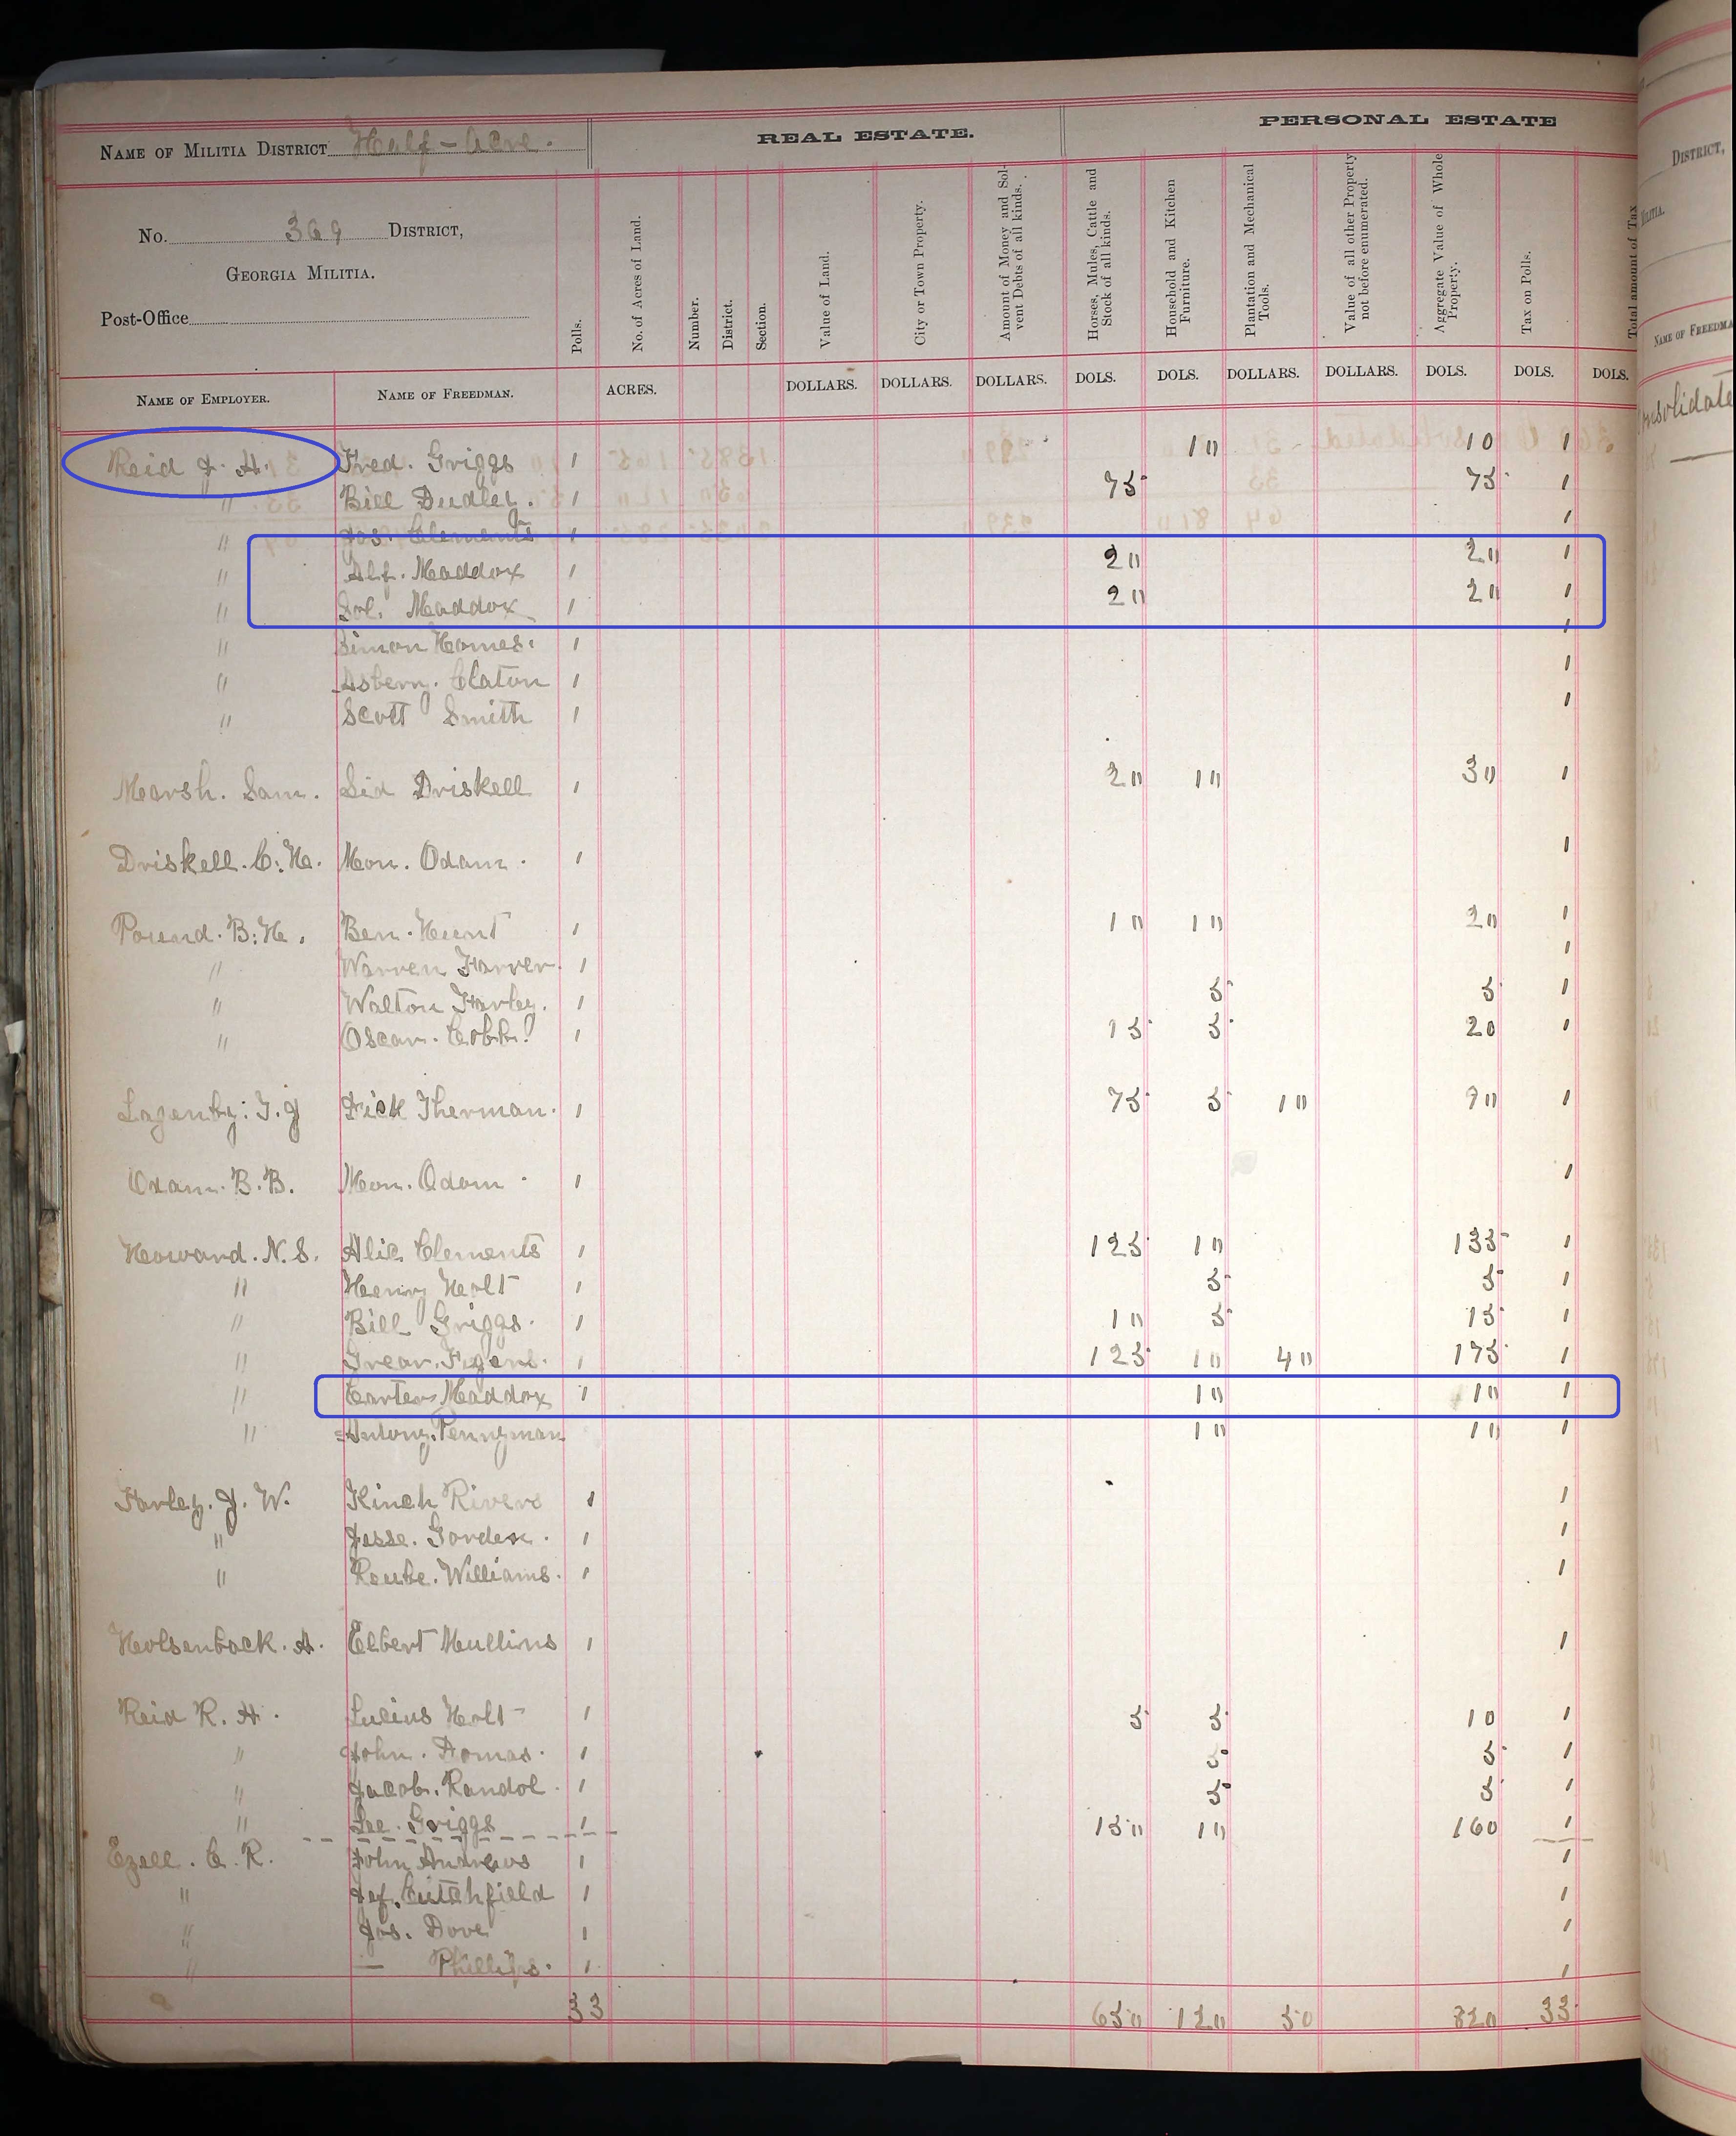 NAME OF MILITIA DISTRICT Half-Acre.
REAL ESTATE.
PERSONAL ESTATE
No. 369 DISTRICT,
GEORGIA MILITIA.
Post-Office
Polls.
No. of Acres of Land.
Number.
District.
Section.
Value of Land.
City or Town Property.
Amount of Money and Solvent Debts of all kinds.
Horses, Mules, Cattle and Stock of all kinds.
Household and Kitchen Furniture.
Plantation and Mechanical Tools.
Value of all other Property not before enumerated.
Aggregate Value of Whole Property.
Tax on Polls.
Total amount of Tax
NAME OF EMPLOYER. NAME OF FREEDMAN. ACRES. DOLLARS. DOLLARS. DOLLARS. DOLS. DOLS. DOLLARS. DOLLARS. DOLS. DOLS. DOLS.
Reid J. H. Fred. Griggs 1 10 10 1
" Bill Dudley. 1 75 75 1
" Jos. Clements 1 1
" Alf. Maddox 1 20 20 1
" Sol. Maddox 1 20 20 1
" Simon Homes. 1 1
" Asbery. Claton 1 1
" Scott Smith 1 1
Marsh. Sam. Sid Driskell 1 20 10 30 1
Driskell. C. H. Mon. Odam. 1 1
Pound. B. H. Ben. Hunt 1 10 10 20 1
" Warren Farrer. 1 1
" Walton Farley. 1 5 5 1
" Oscar. Cobb. 1 15 5 20 1
Lazenby. T. J Dick Therman. 1 75 5 10 90 1
Odam. B. B. Mon. Odam. 1 1
Howard. N. S. Alic Clements 1 125 10 135 1
" Henry Holt 1 5 5 1
" Bill Griggs. 1 10 5 15 1
" 1 125 10 40 175 1
" Carter Maddox 1 10 10 1
" Antony. Pennyman 10 10 1
Farley. J. W. Kinch Rivers 1 1
" Jesse. Gorden. 1 1
" Reube. Williams. 1 1
Holsenback. A. Elbert Mullins 1 1
Reid R. A. Lucius Holt 1 5 5 10 1
" John. 1 5 5 1
" Jacob. Randol. 1 5 5 1
" Lee. Griggs 1 150 10 160 1
Ezell. C. R. John Andrews 1 1
" Jef. Cutchfield 1 1
" Jos. Dove 1 1
" — Phillips. 1 1
33 650 120 50 820 33
DISTRICT,
NAME OF FREEDMA